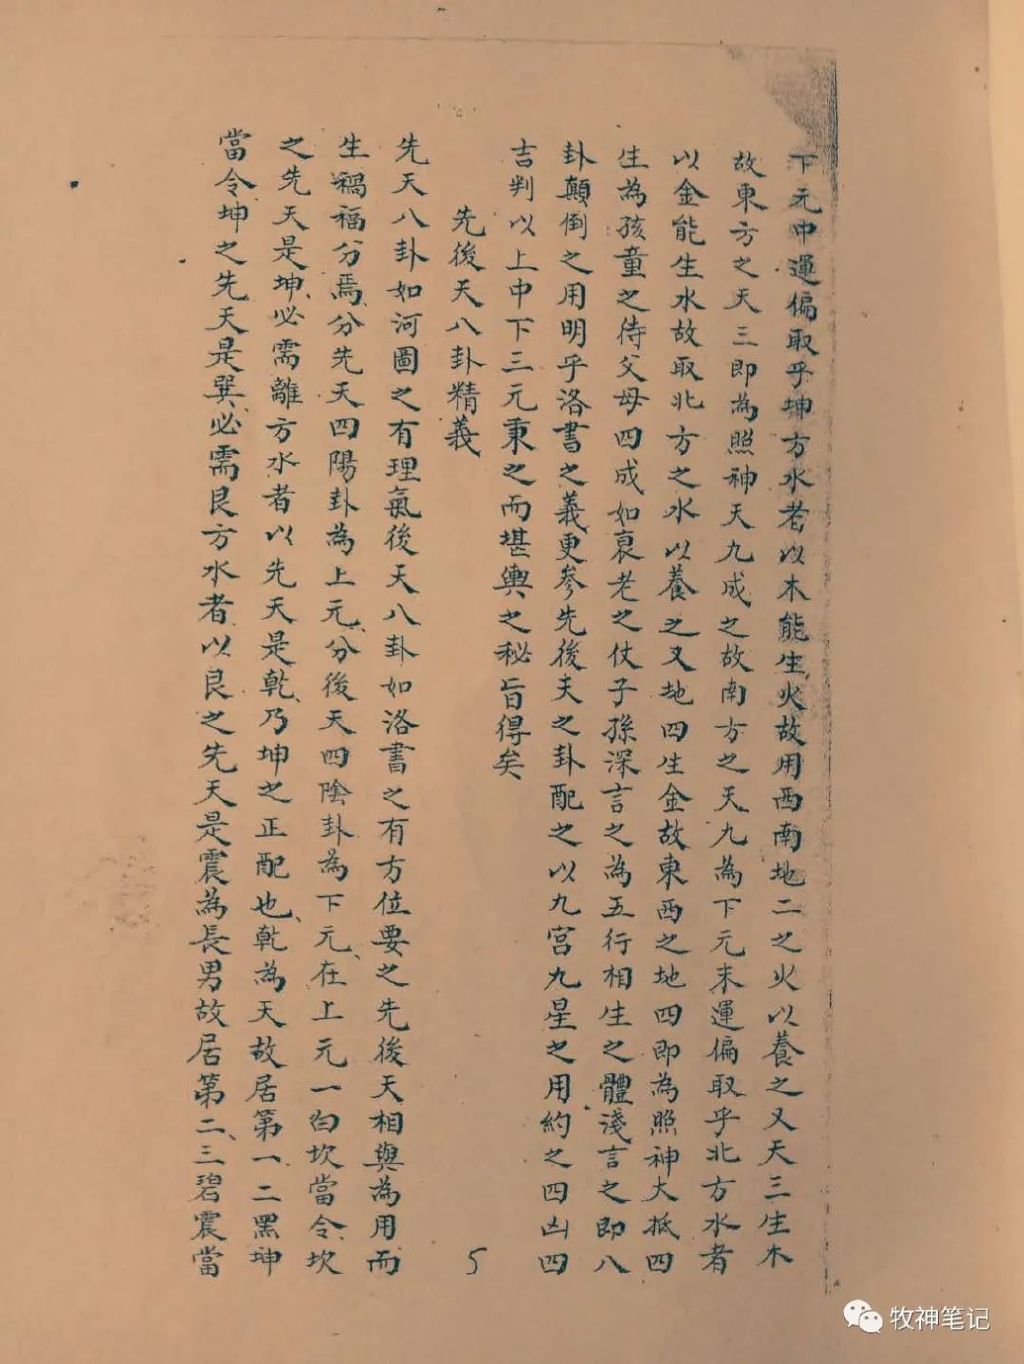 下元中運偏取乎坤方水者以木能生火故用西南地二之火以養之又天三生木
故東方之天三即為照神天九成之故南方之天九為下元末運偏取乎北方水者
以金能生水故取北方之水以養之又地四生金故東西之地四即為照神大抵四
生為孩童之待父母四成如衰老之仗子孫深言之為五行相生之體淺言之即八
卦顛倒之用明乎洛書之義更參先後天之卦配之以九宮九星之用約之四凶四
吉判以上中下三元秉之而堪輿之秘旨得矣
先後天八卦精義
5
先天八卦如河圖之有理氣後天八卦如洛書之有方位要之先後天相與為用而
生禍福分焉、分先天四陽卦為上元、分後天四陰卦為下元、在上元一白坎當令、坎
之先天是坤、必需離方水者以先天是乾、乃坤之正配也、乾為天故居第一、二黑坤
當令坤之先天是巽、必需艮方水者以艮之先天是震為長男故居第二、三碧震當
牧神笔记